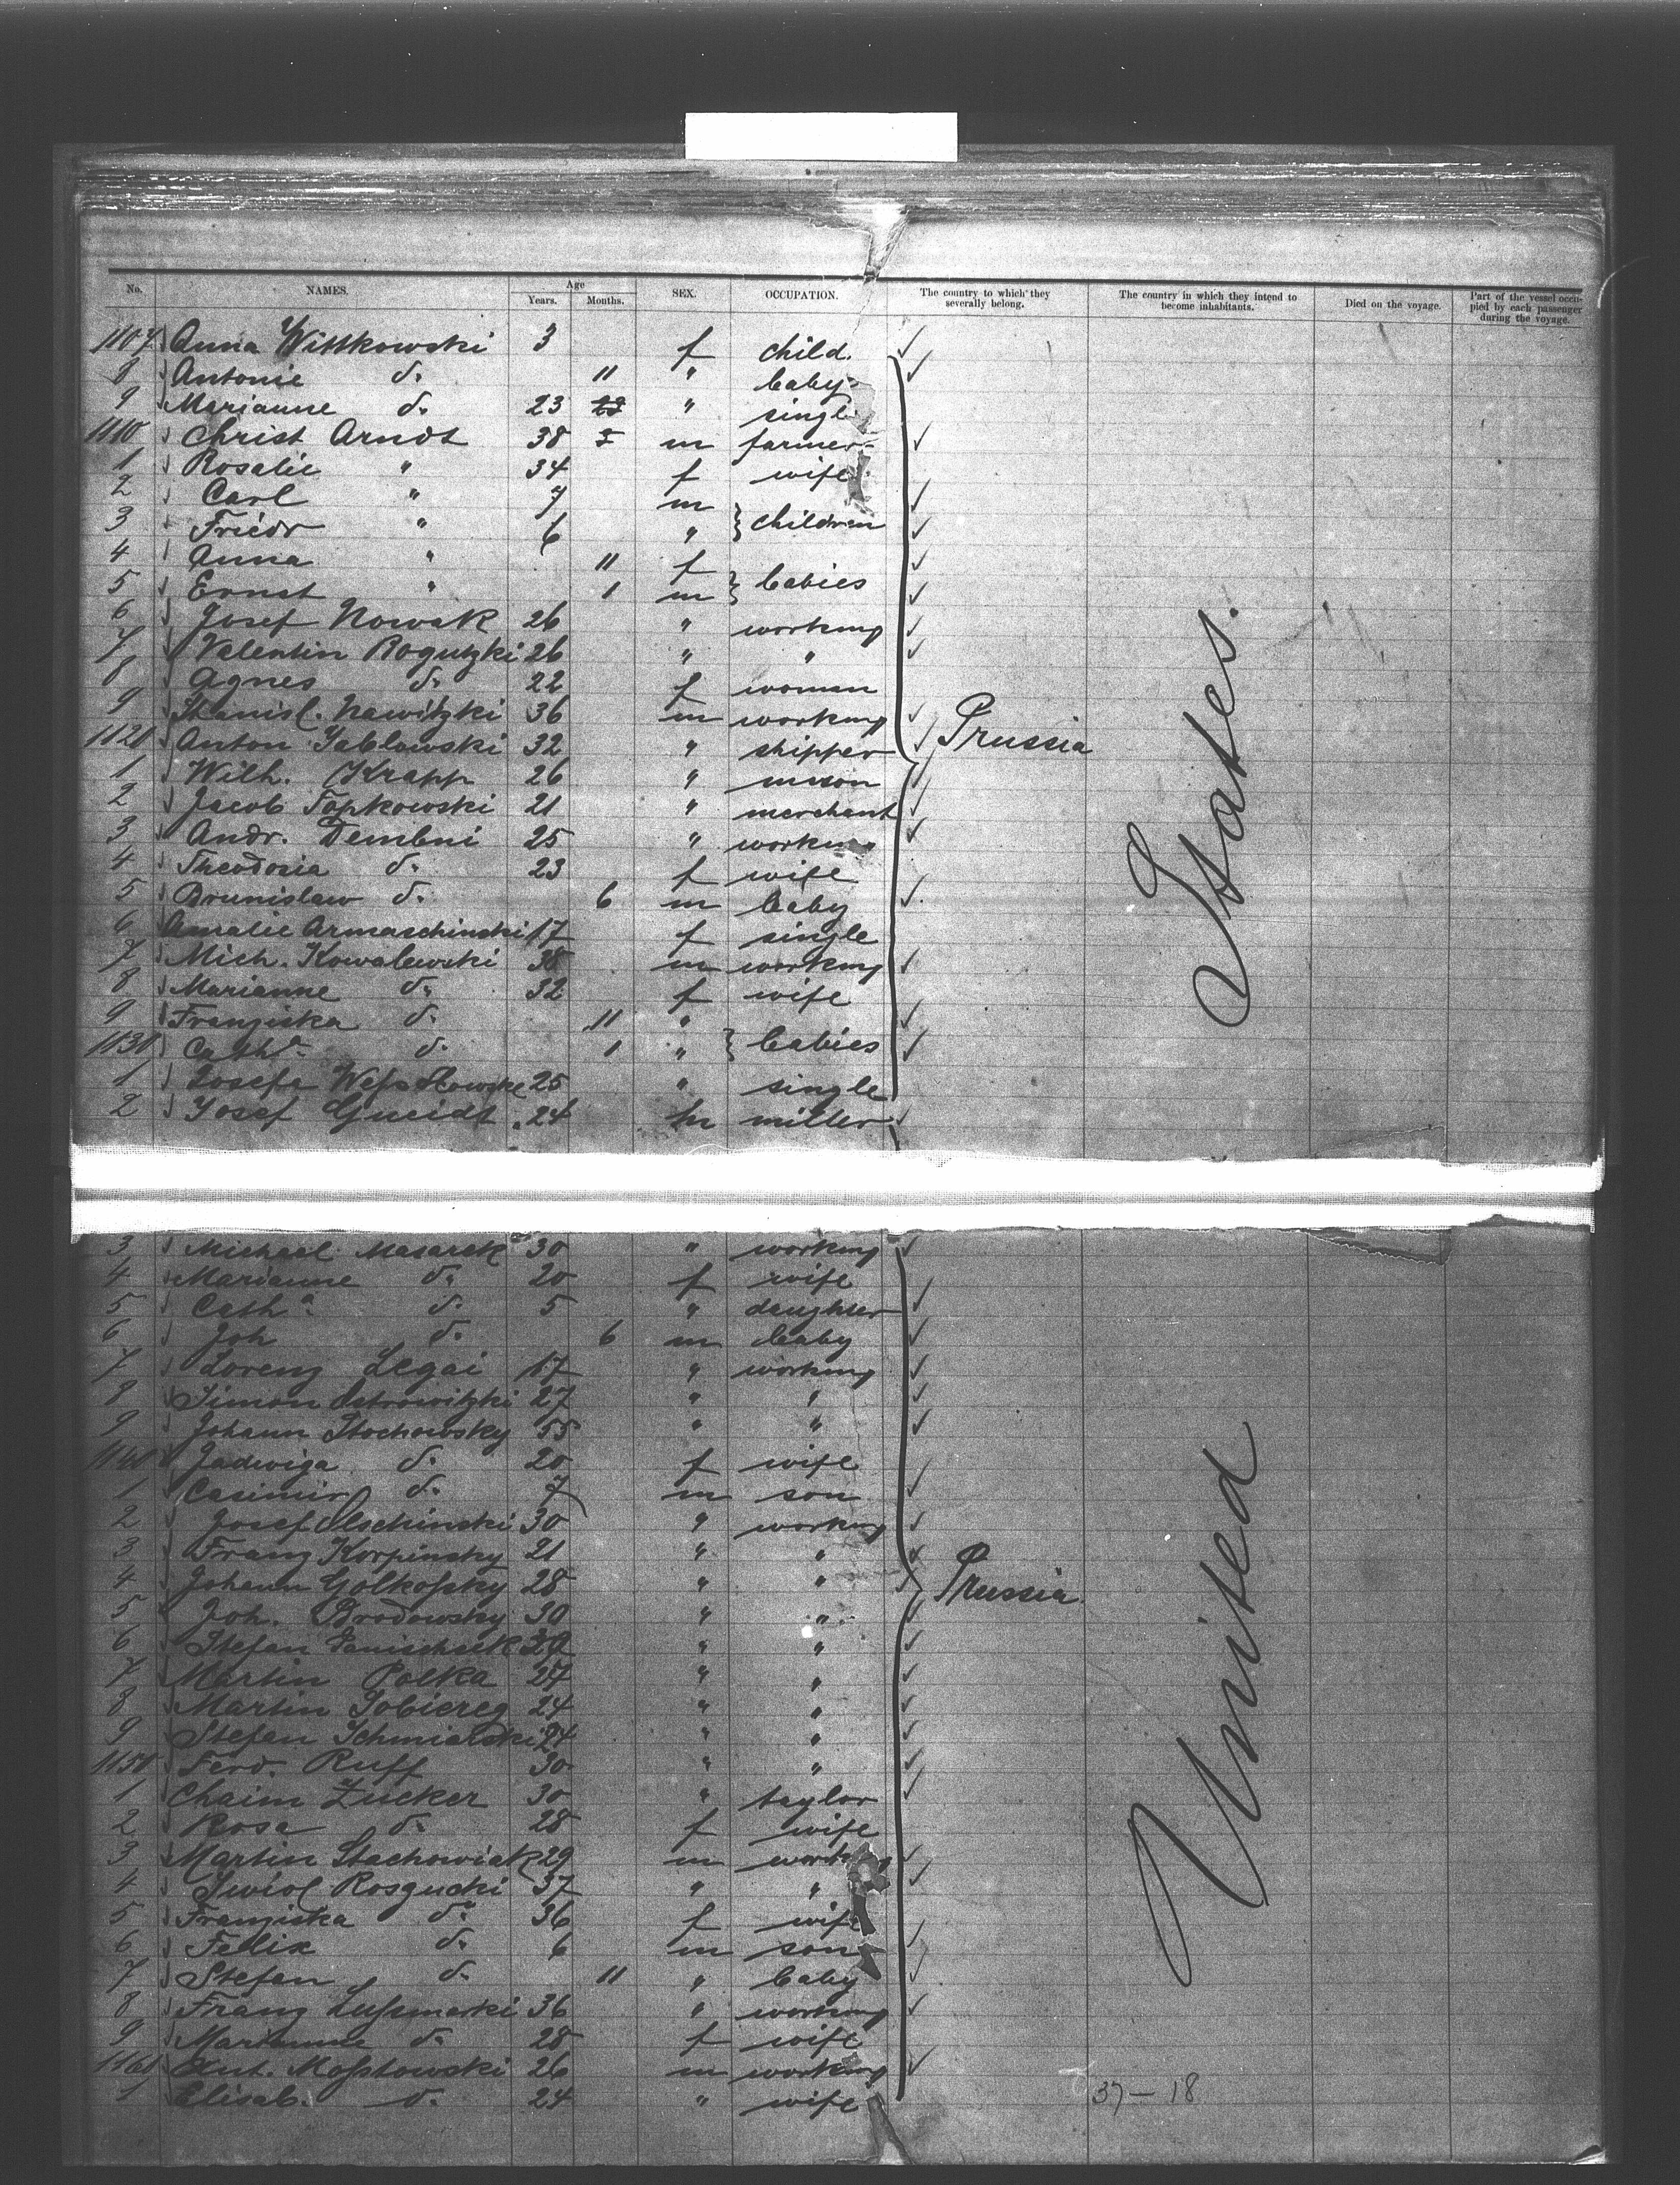 No. NAMES. Age Years. Months. SEX. OCCUPATION. The country to which they severally belong. The country in which they intend to become inhabitants. Died on the voyage. Part of the vessel occupied by each passenger during the voyage.
1107 Anna Wittkowski 3 f child.
8 Antonie do. 11 " baby
9 Marianne do. 23 23 " single
1110 Christ Arndt 38 m farmer
1 Rosalie " 34 f wife
2 Carl " 7 m
3 Friedr " 6 " } children
4 Anna " 11 f
5 Ernst " 1 m } babies
6 Josef Nowak 26 " working
7 Valentin Rogutzki 26 " "
8 Agnes do. 22 f woman
9 Stanisl. Nawitzki 36 m working
1120 Anton Jablowski 32 " shipper Prussia
1 Wilh. Krapp 26 " mason
2 Jacob Topkowski 21 " merchant
3 Andr. Dembni 25 " working
4 Theodosia do. 23 f wife
5 Brunislaw do. 6 m baby
6 Amalie Armaschinski 17 f single
7 Mich. Kowalewski 38 m working
8 Marianne do. 32 f wife
9 Franziska do. 11 "
1130 Catha. do. 1 " } babies
1 Josefa 25 " single
2 Josef Gneidt 24 m miller
3 Michael Masarek 30 " working
4 Marianne do. 20 f wife
5 Catha. do. 5 " daughter
6 Joh do. 6 m baby
7 Lorenz Legai 17 " working
8 Simon Ostrowitzki 27 " "
9 Johann Stochowsky 55 " "
1140 Jadwiga do. 20 f wife
1 Casimir do. 7 m son
2 Josef Olschinski 30 " working
3 Franz Korpinsky 21 " "
4 Johann Golkofsky 28 " " Prussia.
5 Joh. Brodowsky 30 " "
6 Stefan Janischeck " "
7 Martin Polka 27 " "
8 Martin Sobiereg 24 " "
9 Stefan Schmiatski 24 " "
1150 Ferd. Ruff 30 " "
1 Chaim Zucker 30 " taylor
2 Rosa do. 28 f wife
3 Martin Stachowiak 29 m working
4 Rosgucki 37 " "
5 Franziska do. 36 f wife
6 Felix do. 6 m son
7 Stefan do. 11 " baby
8 Franz Lussmarki 36 " working
9 Marianne do. 28 f wife
1160 Ant. Mosstowski 26 m working
1 Elisab. do. 24 " wife
United States.
37 - 18